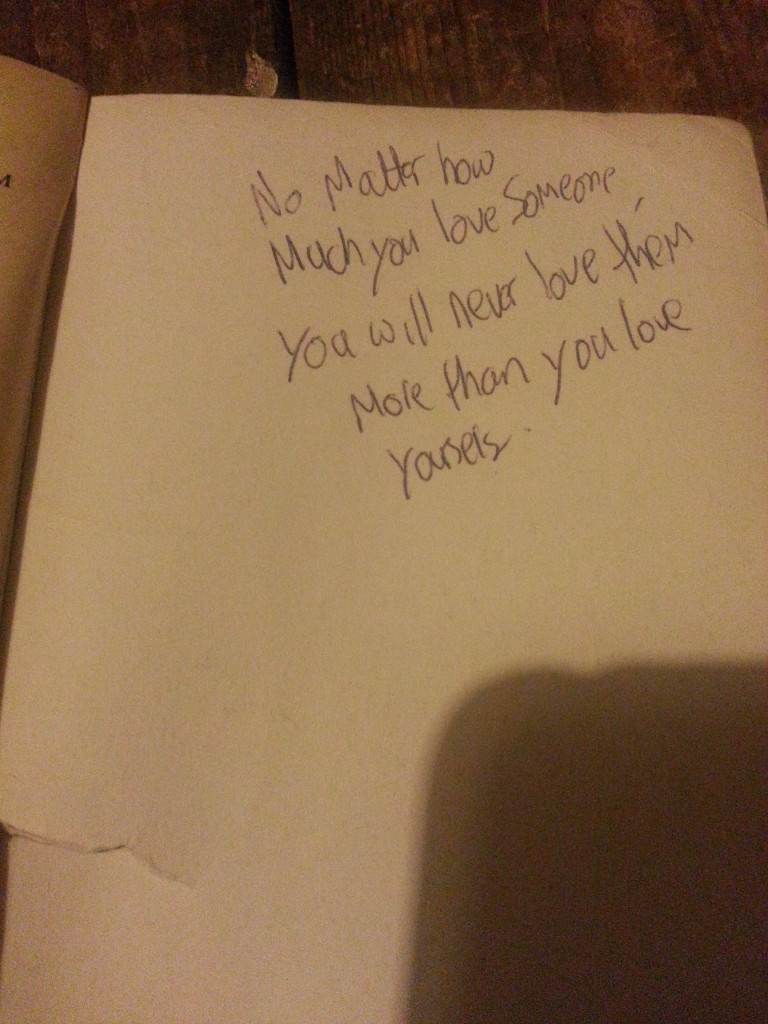 No Matter how
Much you love Someone,
You will never love them
More than you love
Yourself.